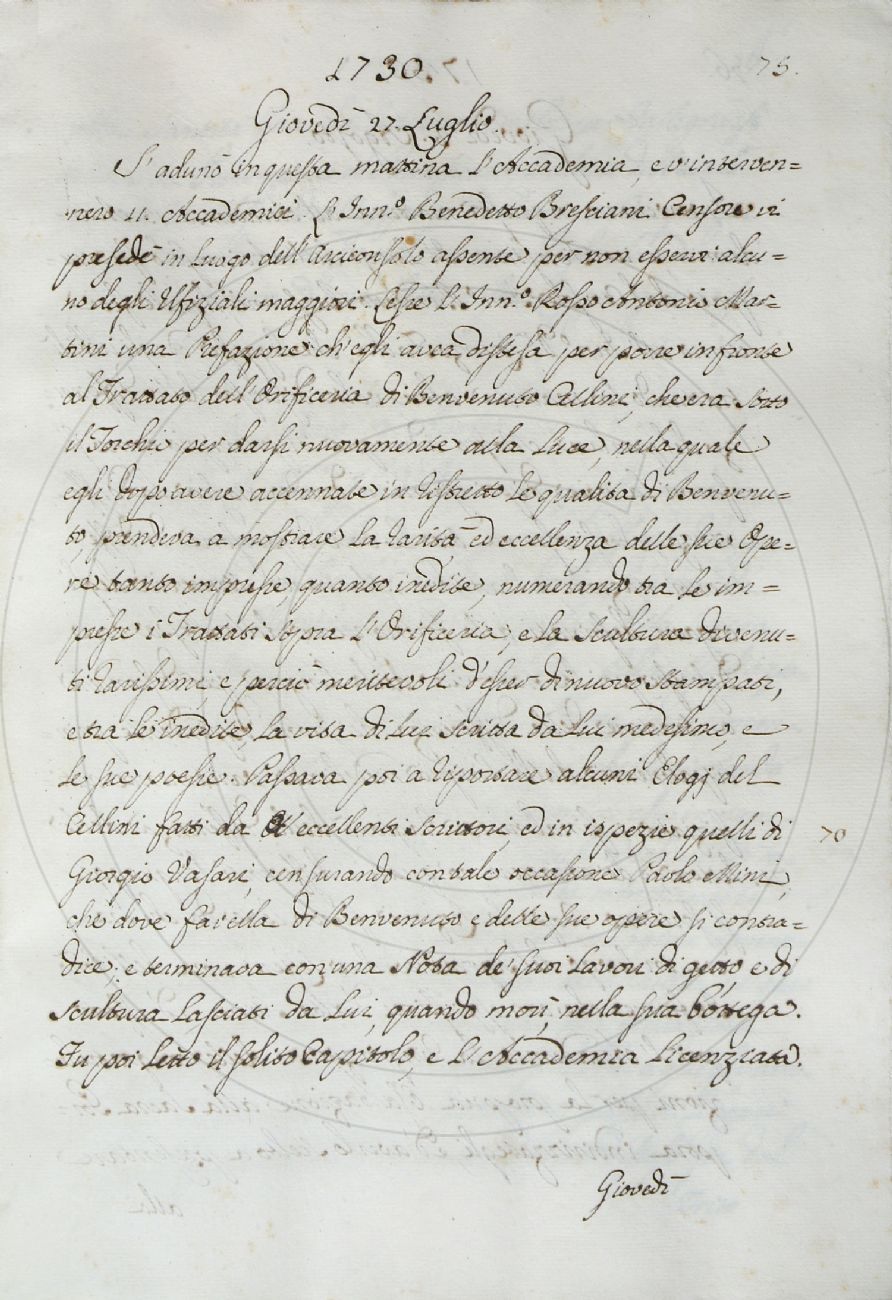 1730. 75.
Giovedì 27. Luglio.
S'adunò in questa mattina l'Accademia, e v'interven=
nero 11. Accademici. L'Inn.º Benedetto Bresciani Censore vi
presedè in luogo dell'Arciconsolo assente per non esservi alcu=
no degli Ufiziali maggiori. Lesse l'Inn.º Rosso Antonio Mar=
tini una Prefazione ch'egli avea distesa per porre in fronte
al Trattato dell'Orificeria di Benvenuto Cellini, che era sotto
il Torchio per darsi nuovamente alla luce, nella quale
egli dopo avere accennate in ristretto le qualità di Benvenu=
to, prendeva a mostrare la rarità ed eccellenza delle sue Ope=
re tanto impresse, quanto inedite, numerando tra le im=
presse i Trattati sopra l'Orificeria, e la Scultura divenu=
ti rarissimi, e perciò meritevoli d'esser di nuovo stampati,
e tra le inedite, la vita di lui scritta da lui medesimo, e
le sue poesie. Passava poi a riportare alcuni Elogj del
Cellini fatti da eccellenti scrittori, ed in ispezie quelli di 70
Giorgio Vasari, censurando con tale occasione Paolo Mini,
che dove favella di Benvenuto e delle sue opere si contra=
dice; e terminava con una Nota de' suoi lavori di getto, e di
scultura lasciati da lui, quando morì, nella sua bottega.
Fu poi letto il solito Capitolo, e l'Accademia licenziata.
Giovedì